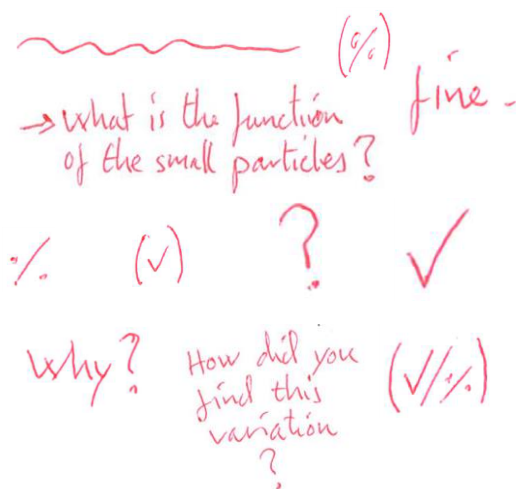 (%)
fine.
→ What is the function
of the small particles?
%
(✓)
?
✓
Why?
How did you
find this
variation
?
(✓/%)